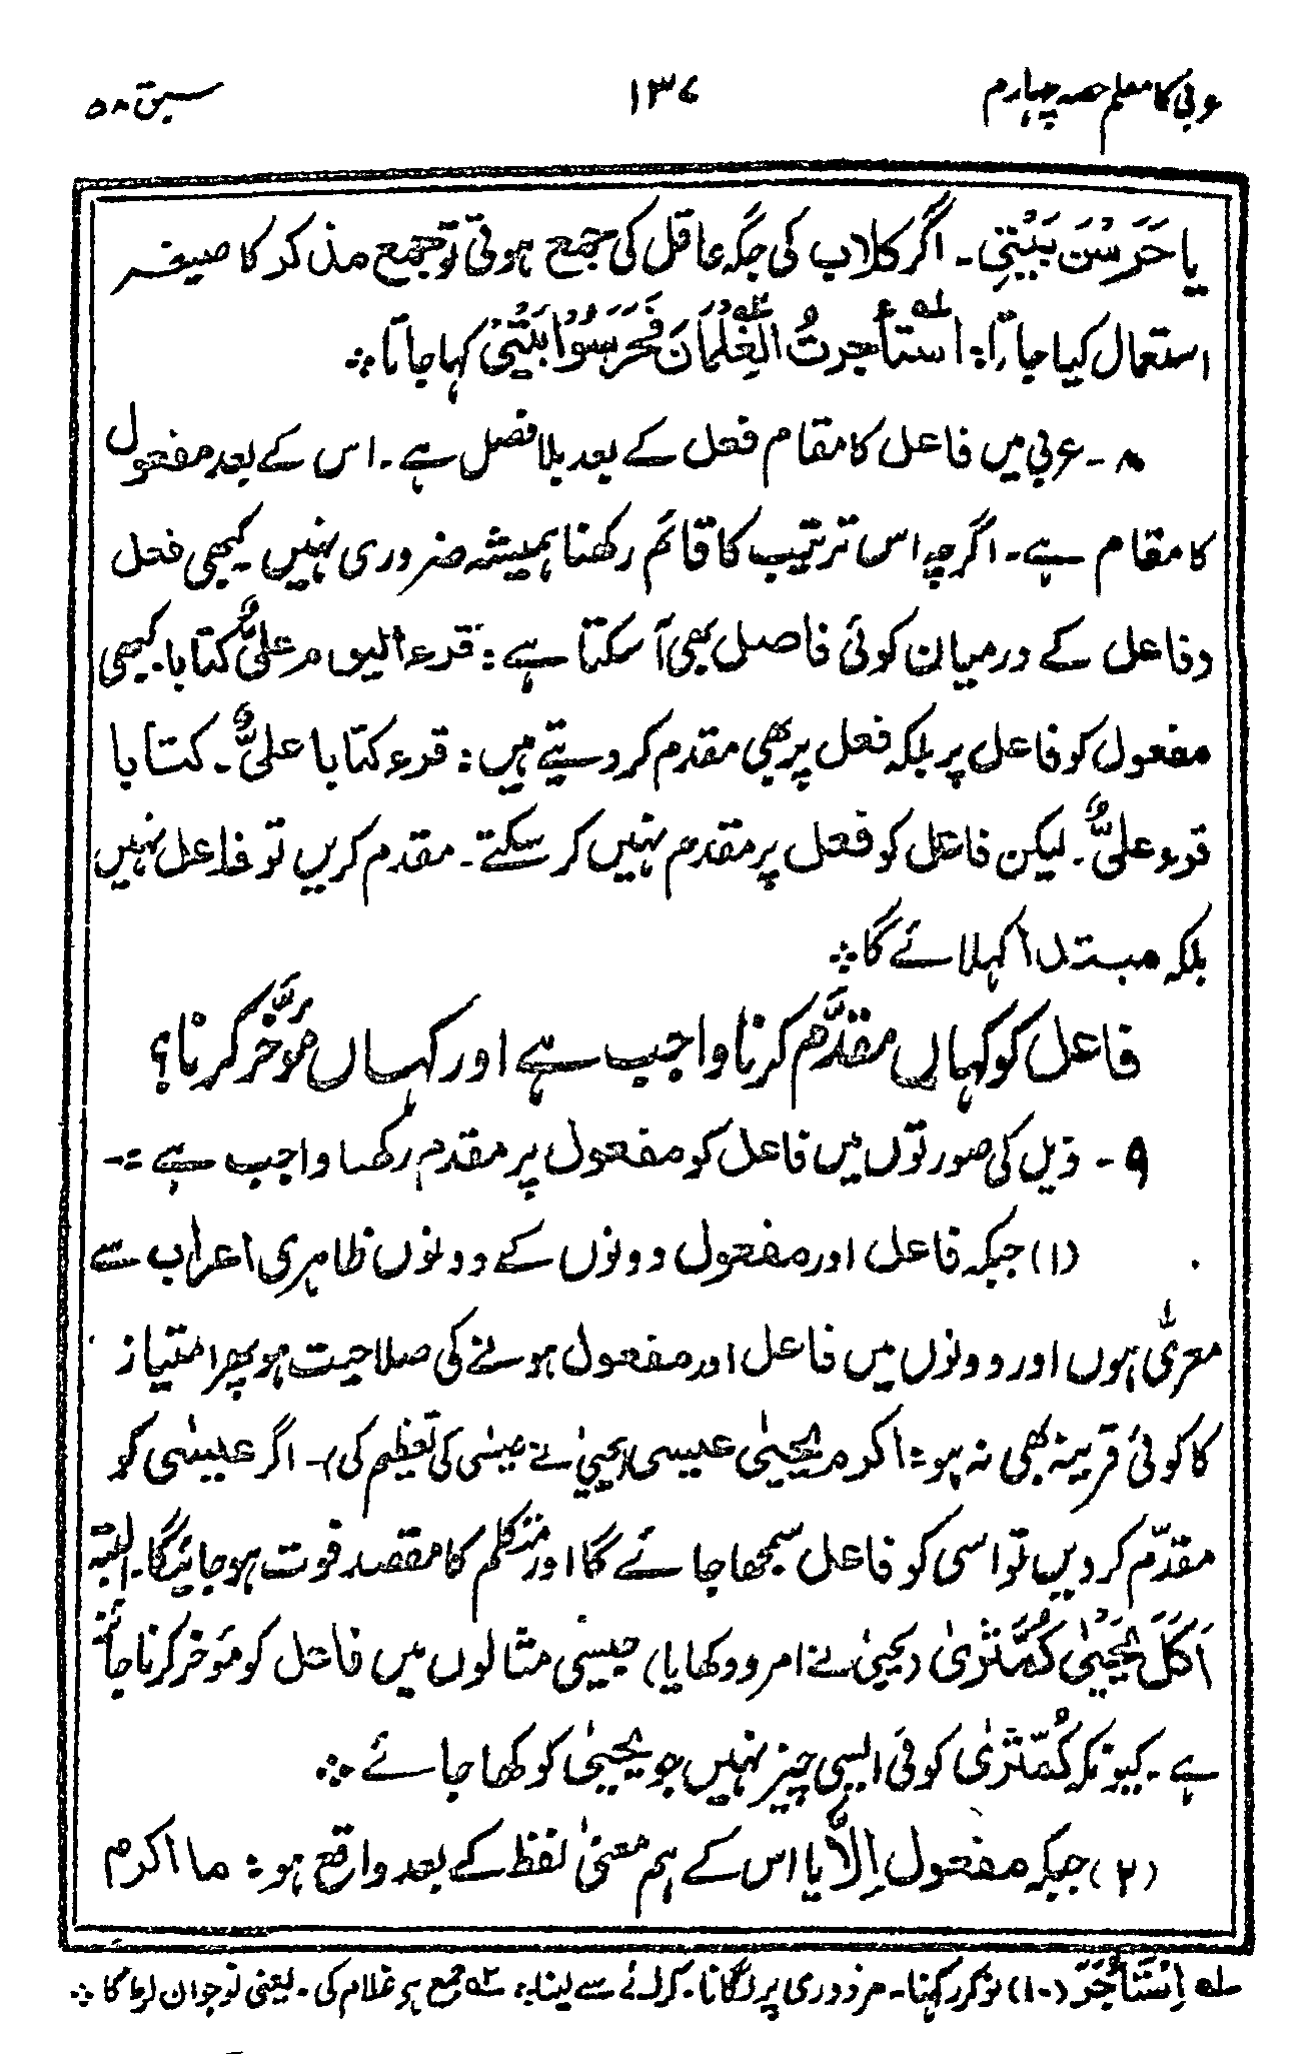 عربی کا معلم حصہ چہارم ۱۳۷ سبق ۵۸
یا حَرَسْنَ بَیْتِي۔ اگر کلاب کی جگہ عاقل کی جمع ہوتی تو جمع مذکر کا صیغہ
استعمال کیا جاتا: استأجرتُ الغِلْمَانَ فَحَرَسُوْا بَيْتِيْ کہا جاتا ∴
۸۔ عربی میں فاعل کا مقام فعل کے بعد بلا فصل ہے۔ اس کے بعد مفعول
کا مقام ہے۔ اگرچہ اس ترتیب کا قائم رکھنا ہمیشہ ضروری نہیں۔ کبھی فعل
و فاعل کے درمیان کوئی فاصل بھی آ سکتا ہے: قرء الیوم علیٌّ کتابا۔ کبھی
مفعول کو فاعل پر بلکہ فعل پر بھی مقدم کر دیتے ہیں: قرء کتابا علیٌّ۔ کتابا
قرء علیٌّ۔ لیکن فاعل کو فعل پر مقدم نہیں کر سکتے۔ مقدم کریں تو فاعل نہیں
بلکہ مبتدا کہلائے گا ∴
فاعل کو کہاں مقدَّم کرنا واجب ہے اور کہاں مُؤَخَّر کرنا؟
۹۔ ذیل کی صورتوں میں فاعل کو مفعول پر مقدم رکھنا واجب ہے :۔
(۱) جبکہ فاعل اور مفعول دونوں کے دونوں ظاہری اعراب سے
معریٰ ہوں اور دونوں میں فاعل اور مفعول ہونے کی صلاحیت ہو پھر امتیاز
کا کوئی قرینہ بھی نہ ہو: اکرم یحییٰ عیسی (یحییٰ نے عیسٰی کی تعظیم کی)۔ اگر عیسٰی کو
مقدّم کر دیں تو اسی کو فاعل سمجھا جائے گا اور متکلم کا مقصد فوت ہو جائیگا۔ البتہ
اَکَلَ یَحْیٰی کُمَّثْرٰی (یحییٰ نے امرود کھایا) جیسی مثالوں میں فاعل کو مؤخر کرنا جائز
ہے۔ کیونکہ کُمَّثْرٰی کوئی ایسی چیز نہیں جو یحییٰ کو کھا جائے ∴
(۲) جبکہ مفعول اِلَّا یا اس کے ہم معنیٰ لفظ کے بعد واقع ہو: ما اکرم
۱ اِسْتَأْجَرَ (۱۰) نوکر رکھنا۔ مزدوری پر لگانا۔ کرائے سے لینا: ۲ جمع ہے غلام کی۔ یعنی نوجوان لڑکا ∴